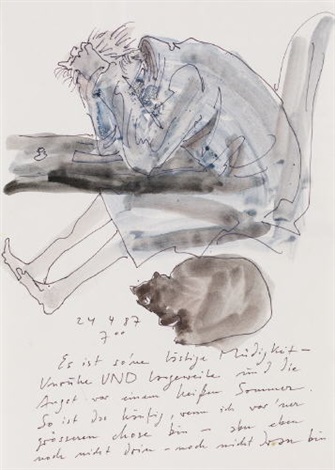 24 4 87
7⁰⁰
Es ist so'ne lästige Müdigkeit –
Unruhe UND Langeweile und die
Angst vor einem heißen Sommer.
So ist das häufig, wenn ich vor 'ner
grösseren chose bin – aber eben
noch nicht drin – noch nicht drin bin